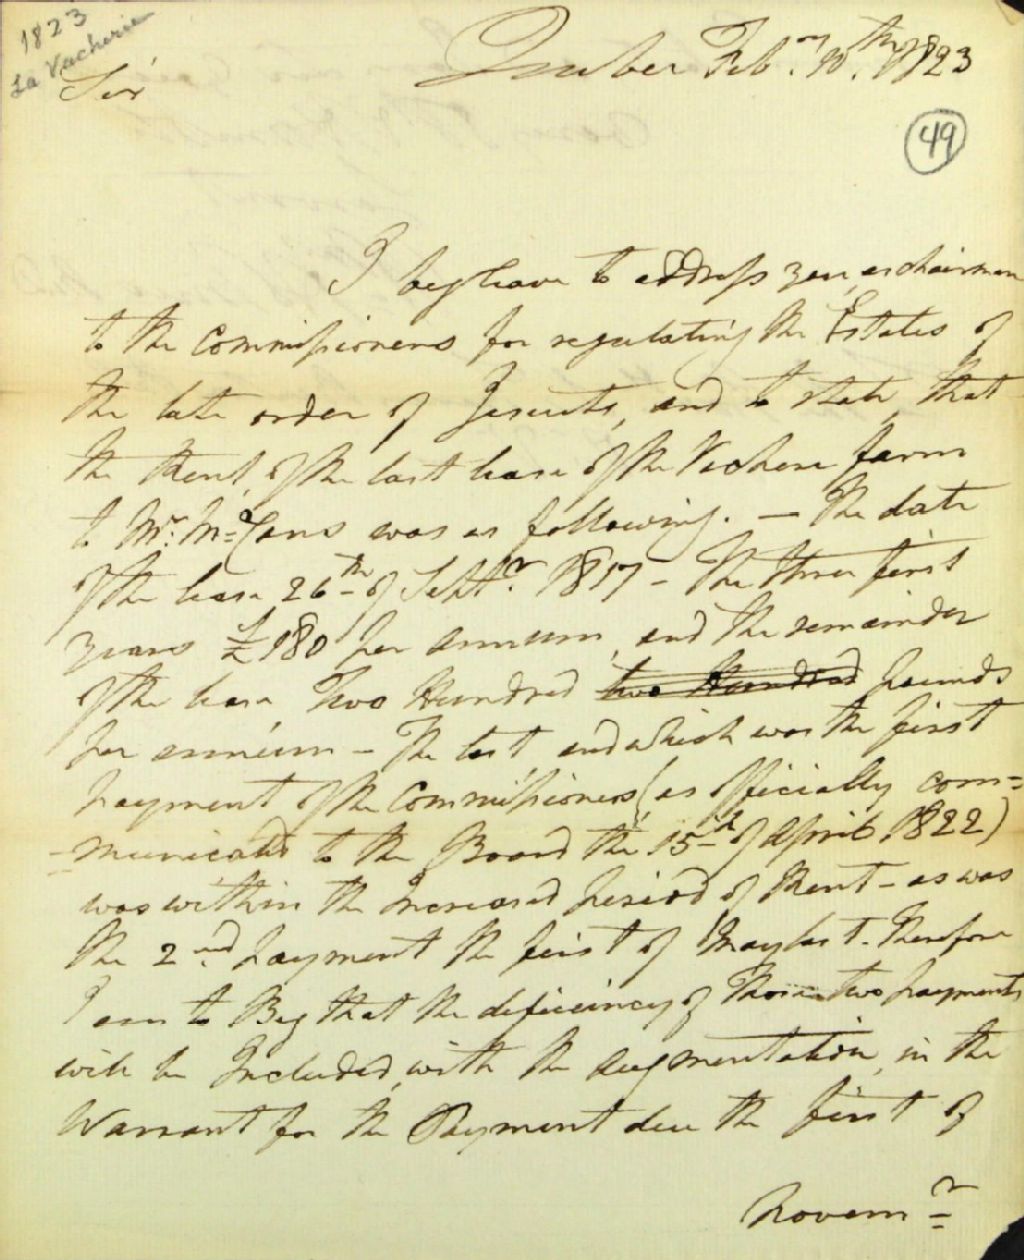 1823
La Vacherie
Quebec Feby. 10th. 1823
Sir
49
I beg leave to address you, as chairman
to the Commissioners for regulating the Estates of
the late order of Jesuits, and to state, that
the Rent, of the last lease of the Vacherie farm
to Mr. Mc Cans was as following. — The date
of the lease 26th of Septr. 1817 — The three first
years £180 per annum, and the remainder
of the lease, Two Hundred two Hundred pounds
per annum — The last, and which was the first
payment of the Commissioners (as officially com=
=municated to the Board the 15th of April 1822)
was within the Increased period of Rent — as was
the 2nd. payment the first of May last. Therefore
I am to Beg that the deficiency of Those two payments
will be Included, with the augmentation, in the
Warrant for the Payment due the first of
Novemr